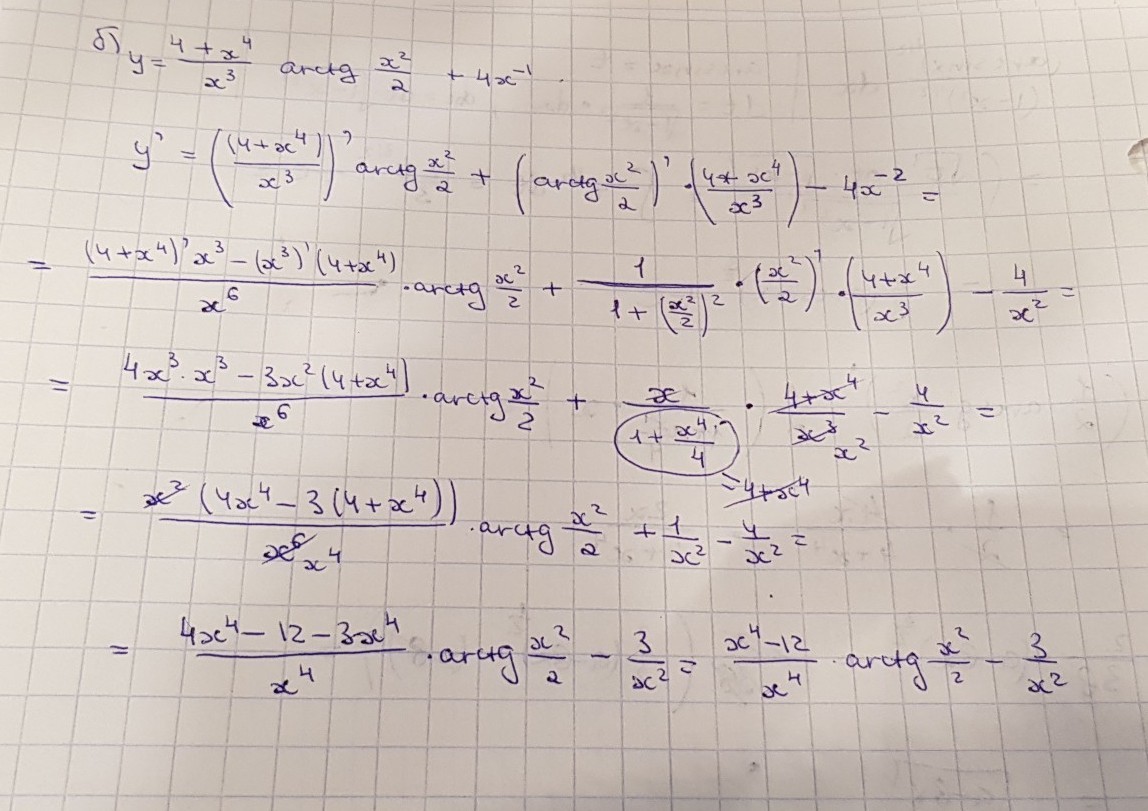 б) y = (4 + x⁴)/x³ arctg x²/2 + 4x⁻¹.
y' = ((4+x⁴)/x³)' arctg x²/2 + (arctg x²/2)' · ((4+x⁴)/x³) − 4x⁻² =
= ((4+x⁴)' x³ − (x³)' (4+x⁴))/x⁶ · arctg x²/2 + 1/(1+(x²/2)²) · (x²/2)' · ((4+x⁴)/x³) − 4/x² =
= (4x³ · x³ − 3x² (4+x⁴))/x⁶ · arctg x²/2 + x/(1 + x⁴/4) · (4+x⁴)/x³ x² − 4/x² =
= 4+x⁴
= x² (4x⁴ − 3 (4+x⁴))/x⁶ x⁴ · arctg x²/2 + 1/x² − 4/x² =
= (4x⁴ − 12 − 3x⁴)/x⁴ · arctg x²/2 − 3/x² = (x⁴−12)/x⁴ · arctg x²/2 − 3/x²